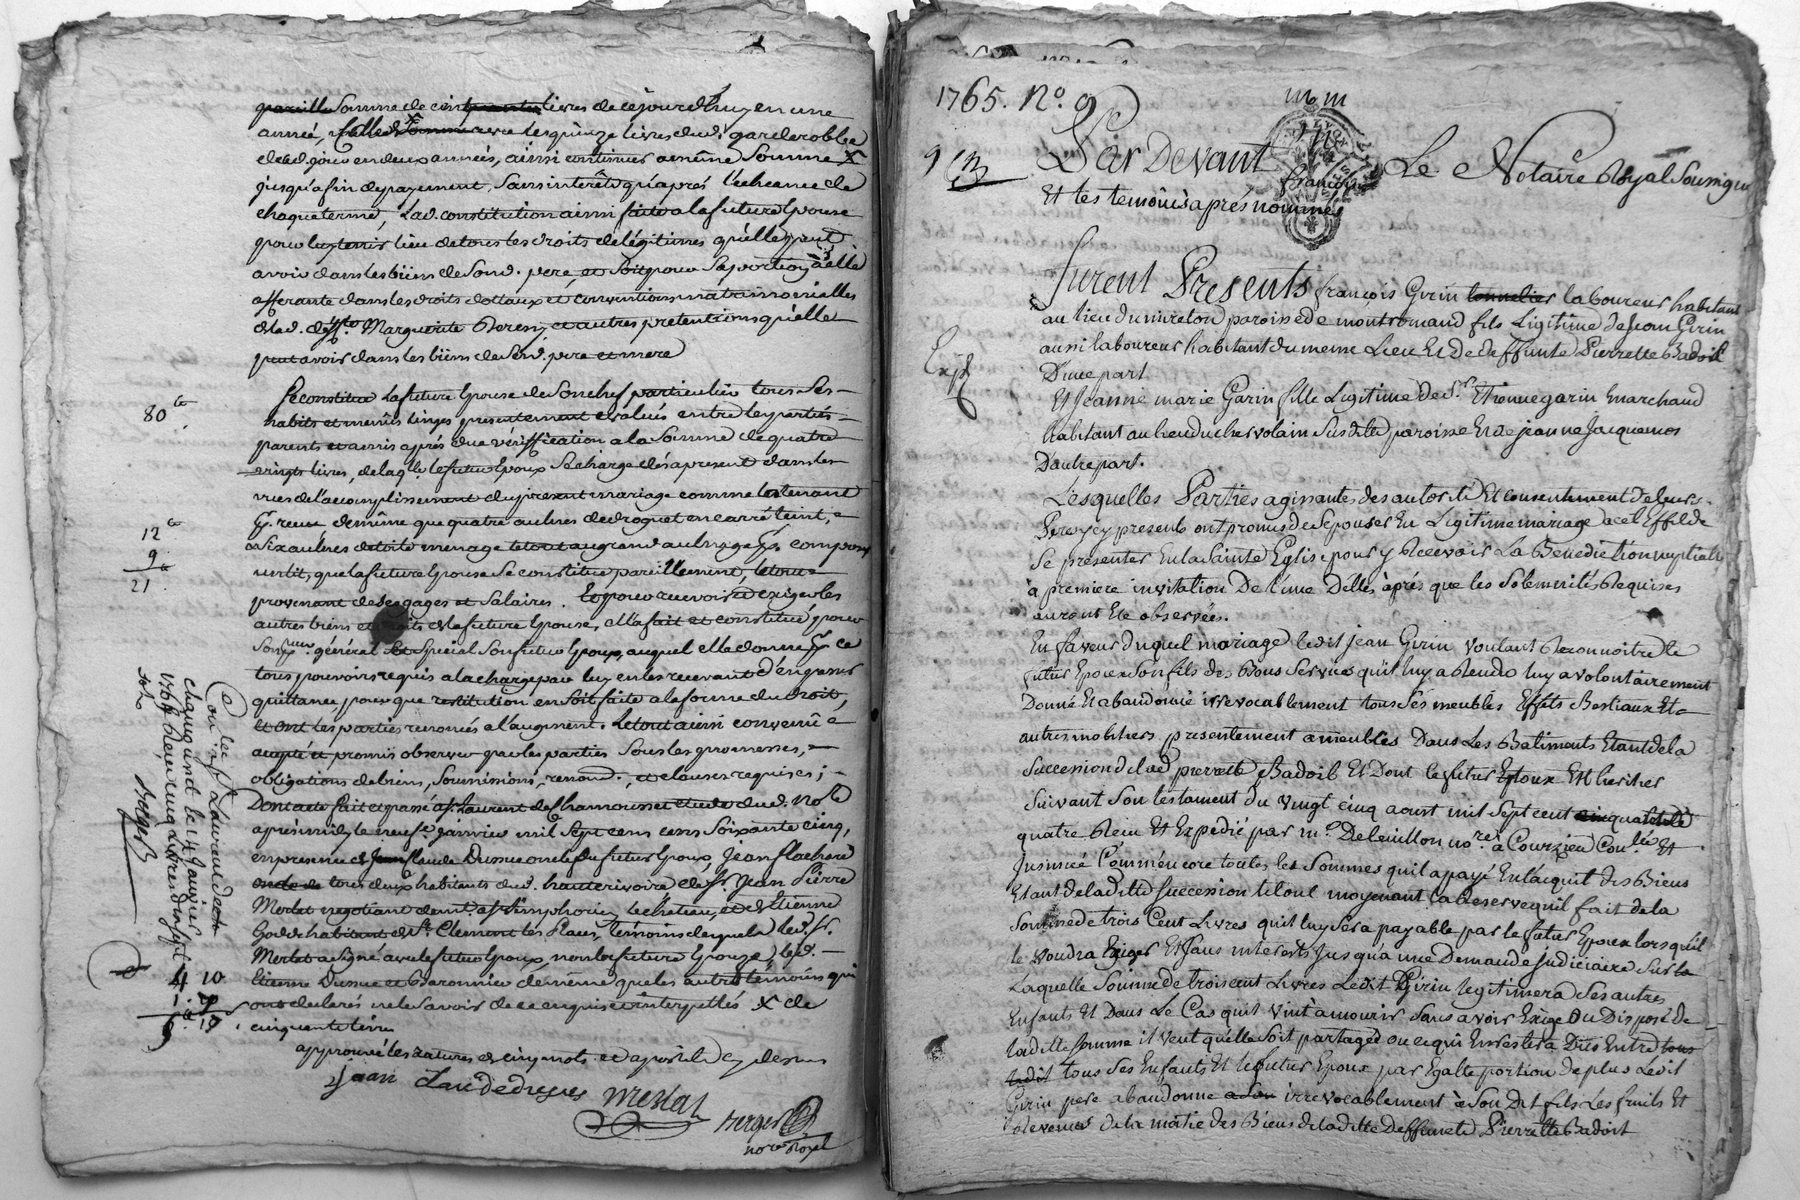 pareille Somme de cinquante livres de ce jourd'huy en une
année, et les quinze livres dud. garderobbe
dud. jour en deux années, ainsi continuer a même Somme X
jusqu'a fin de payement, Sans interêts qu'aprés l'écheance de
chaque terme, Lad. constitution ainsi faite a la future Epouse
pour luy tenir lieu de tous les droits de légitimes qu'elle peut
avoir dans les biens de Sond. pere, et Soit pour Sa portion à elle
afferante dans les droits dottaux et conventions matrimonialles
de lad. deffte Marguerite et autres pretentions qu'elle
peut avoir dans les biens de Sesd. pere et mere
80 tt
Se constitue La future Epouse de Son chef particulier tous Ses
habits et menus linges presentement evalués entre les parties
parents et amis aprés due vériffication a la Somme de quatre
vingts livres, de laqlle le futur Epoux Se charge dés a present dans les
vues de l'accomplissement du present mariage comme les tenant
reçue de même que quatre aulnes de droguet en carré teint,
12 tt
9
21 tt
Six aulnes de toile menage le tout au grand aulnage
vertit, que la future Epouse Se constitue pareillement, le tout
provenant de Ses gages et Salaires. Et pour recevoir et exiger les
autres biens et droits de la future Epouse, elle a fait et constitué pour
Son général et Special Son futur Epoux, auquel elle donne ce
tous pouvoirs requis a la charge par luy en les recevant d'en passer
quittance, pour que restitution en Soit faite a la forme du droit,
et ont les parties renoncé a l'augment. Le tout ainsi convenu
accepté et promis observer par les parties Sous les promesses,
obligations de biens, Soumissions, renond. et clauses requises;
Dont acte fait et passé a St. Laurent de Chamousset etude dud. note
aprés midy le neufe janvier mil Sept cens Soixante cinq,
en presence de Claude Dusuc oncle du futur Epoux, Jean flachard
tous deux habitants dud. hauterivoire de Sr. Jean Pierre
Merlat negotiant de mt. a St. Simphorien le chateau, et d'Etienne
habitant de St. Clement les Places, temoins lesquels led. Sr.
Merlat a Signé avec le futur Epoux non la future Epouze, led.
Etienne Dusuc et de même que les autres témoins qui
ont declaré ne le Savoir de ce enquis et interpellés X de
cinquante livres
approuvé les ratures de cinq mots et apostille cy dessus
Jean
Merlat
Berger
nore Royal
Conlé a St Laurent de
Chamousset le 14 Janvier
1765 Reçu cinq Livres dix Sept
sols
Berger
4 10
1765. No. 9
Par Devant Le Notaire Royal Soussigné
Et les temoins après nommés
furent Presents françois Girin tonnelier laboureur habitant
au lieu du nivreton paroisse de montromand fils Legitime de Jean Girin
aussi laboureur habitant du meme Lieu Et De deffunte Pierrette Badoil
D'une part
Expé
Et Jeanne marie Garin fille Legitime de Sr. Etienne garin marchand
habitant au lieu du chervolain Susditte paroisse Et de jeanne Jacquemos
D'autre part.
Lesquelles Parties agissantes des autorité Et consentement de leurs
Peres cy presents ont promis de Sepouser En Legitime mariage a cet Effet de
Se presenter En la Sainte Eglise pour y Recevoir La Benediction nuptiale
à premiere invitation De l'une Delles après que les Solemnités Requises
auront Eté observées.
En faveur Duquel mariage ledit jean Girin voulant Reconnoitre le
futur Epoux Son fils des Bons Services qu'il luy a Rendu luy a volontairement
Donné Et abandonné irrevocablement tous Ses meubles Effets Bestiaux Et
autres mobiliers presentement ameublés Dans Les Batiments Etant de la
Succession de lad pierrette Badoil Et Dont le futur Epoux Est heritier
Suivant Son testament du vingt cinq aoust mil Sept cent cinquante
quatre Reçu Et Expedié par me. Deleuillon nore. à Courzieu Conlé Et
Jnsinué Comme encore toutes les Sommes qu'il a payé En l'acquit des Biens
Etant de laditte Succession le tout moyenant la Reserve qu'il fait de la
Somme de trois Cent Livres qu'il luy Sera payable par le futur Epoux lorsqu'il
le voudra Exiger Et Sans interests Jusqu'à une Demande Judiciaire Sur la
Laquelle Somme de trois cent Livres Ledit Girin legitimera Ses autres
Enfants Et Dans Le Cas qu'il vint à mourir Sans avoir Exigé Ou Disposé de
laditte Somme il veut qu'elle Soit partagée ou ce qui En restera Dus Entre tous
ledit tous Ses Enfants Et le futur Epoux par Egalle portion De plus Ledit
Girin pere abandonne irrevocablement à Son Dit fils Les fruits Et
Revenus de la moitié des Biens de laditte Deffunte Pierrette Badoit